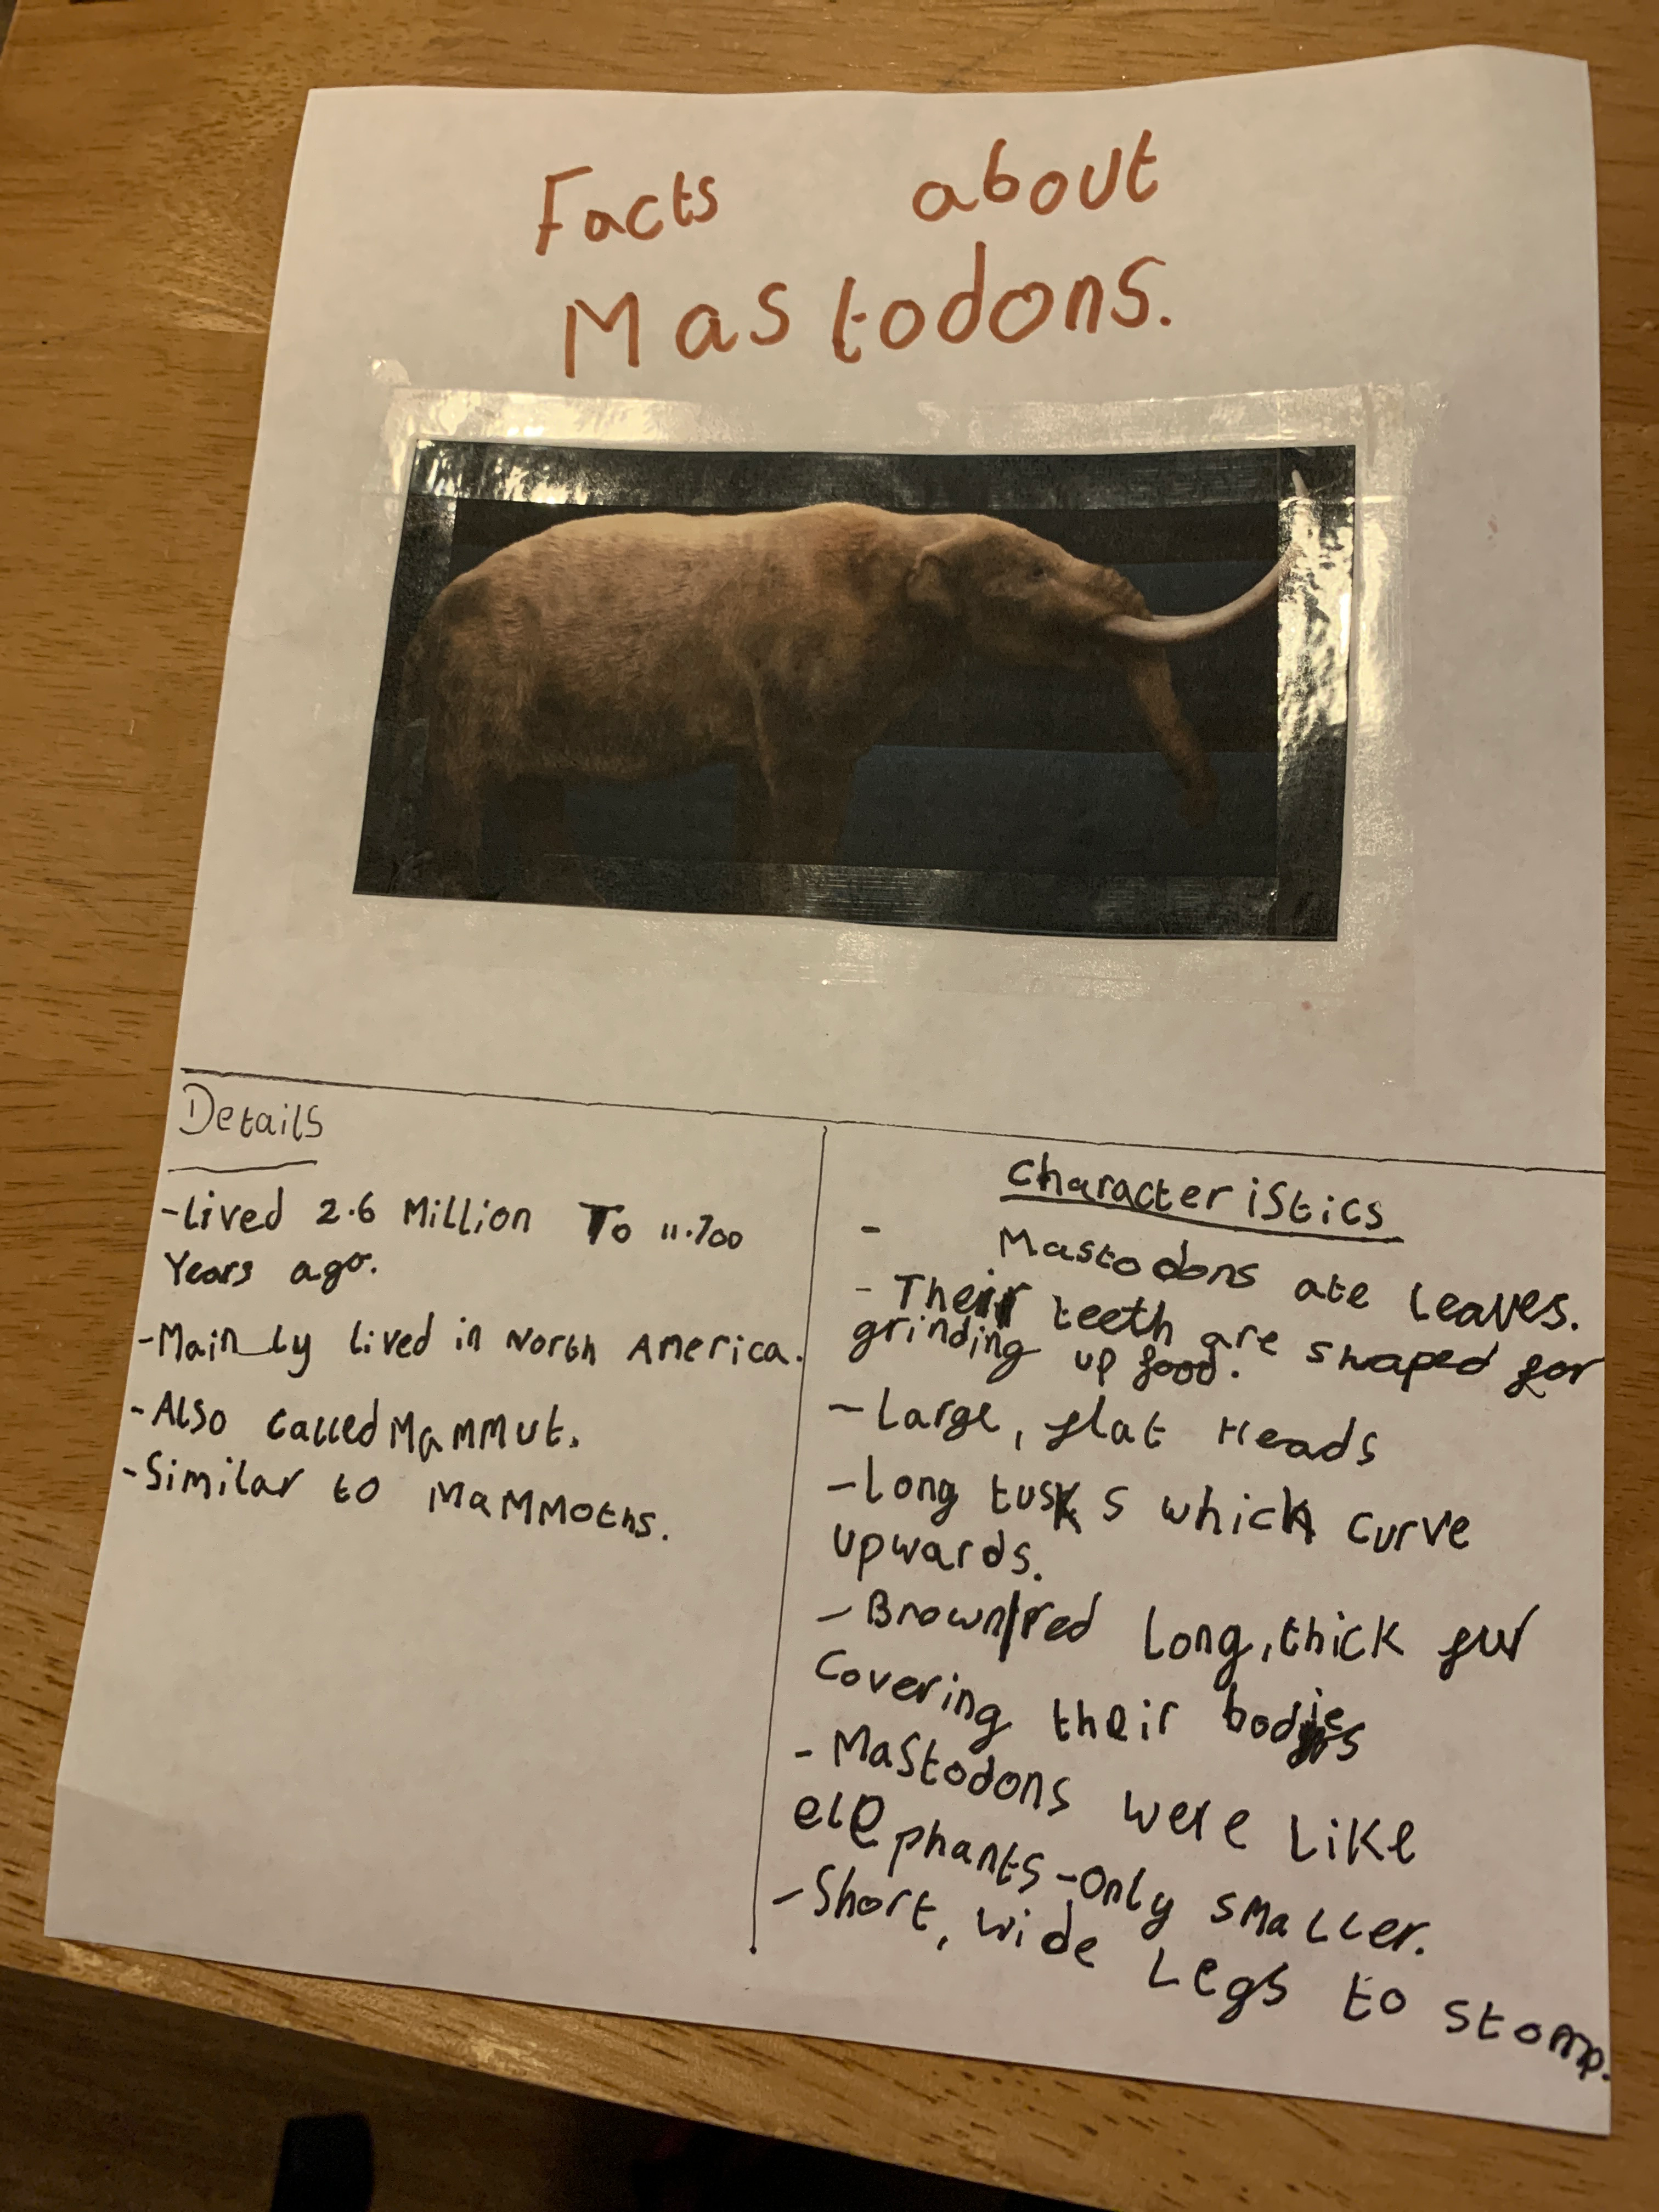 Facts about
Mastodons.
Details
-Lived 2.6 Million To 11.700
Years ago.
-Mainly lived in North America.
-Also called Mammut.
-Similar to Mammoths.
Characteristics
- Mastodons ate leaves.
- Their teeth are shaped for
grinding up food.
-Large, flat Heads
-Long tusks which curve
upwards.
-Brown/red long, thick fur
covering their bodies
-Mastodons were like
elephants-only smaller.
-Short, wide Legs to stomp.